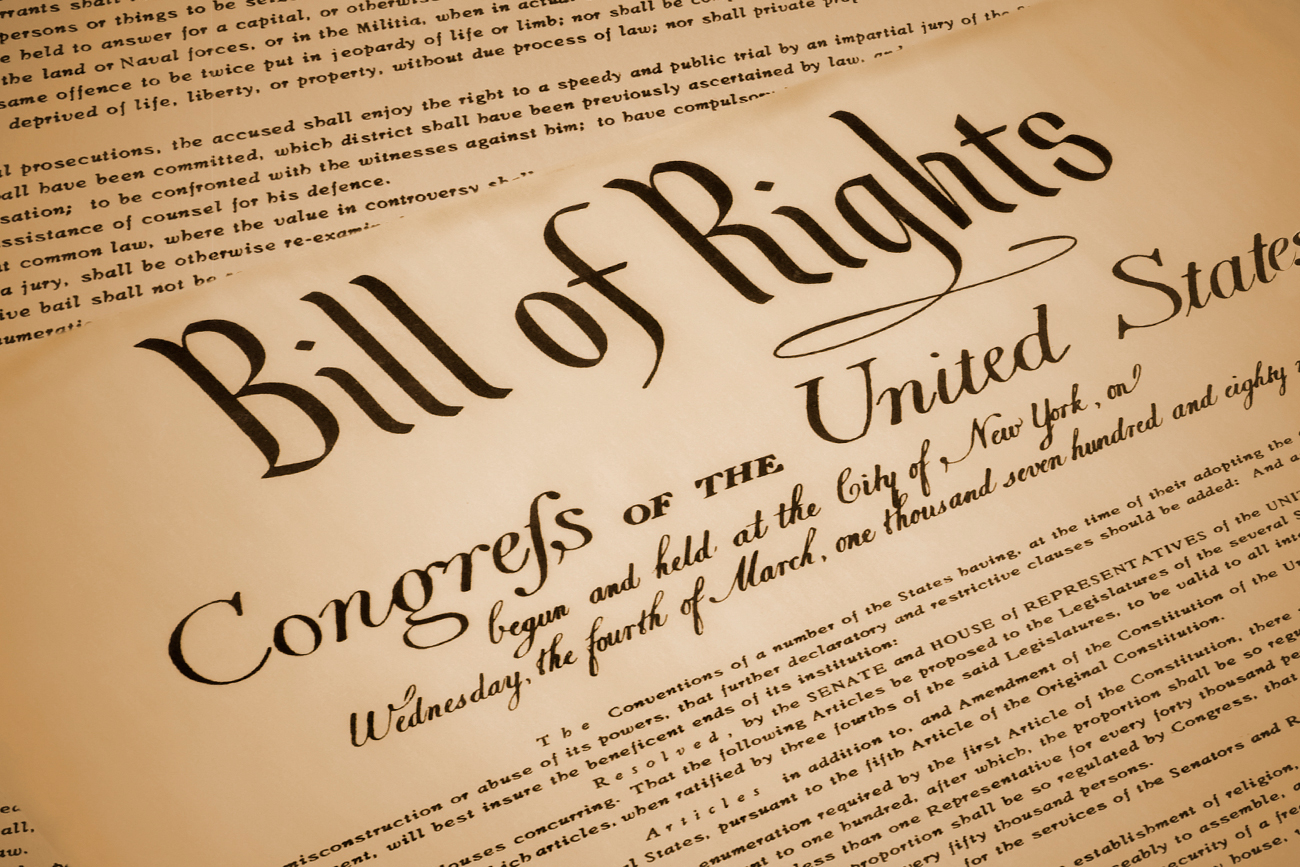 rrants shall
persons or things to be
e held to answer for a capital, or otherwise
the land or Naval forces, or in the Militia, when in
same offence to be twice put in jeopardy of life or limb; nor shall be
deprived of life, liberty, or property, without due process of law; nor shall private
l prosecutions, the accused shall enjoy the right to a speedy and public trial by an impartial jury of the
all have been committed, which district shall have been previously ascertained by law,
sation; to be confronted with the witnesses against him; to have
ssistance of counsel for his defence.
t common law, where the value in controversy
a jury, shall be otherwise
ive bail shall not be
Bill of Rights
Congreſs OF THE United States
begun and held at the City of New York, on
Wednesday, the fourth of March, one thousand seven hundred and eighty
The Conventions of a number of the States having, at the time of their adopting the
misconstruction or abuse of its powers, that further declaratory and restrictive clauses should be added: And
ent, will best insure the beneficent ends of its institution:
Resolved, by the SENATE and HOUSE of REPRESENTATIVES of the
ouses concurring. That the following Articles be proposed to the Legislatures of the several
ich articles, when ratified by three fourths of the said Legislatures, to be valid to all
Articles in addition to, and Amendment of the Constitution of the
l States, pursuant to the fifth Article of the Original Constitution.
enumeration required by the first Article of the Constitution, there
nt to one hundred, after which, the proportion shall be so
less than one Representative for every forty thousand
proportion shall be so regulated by Congress, that
very fifty thousand persons.
for the services of the Senators and
establishment of religion,
ably to assemble,
security of a
house,
all,